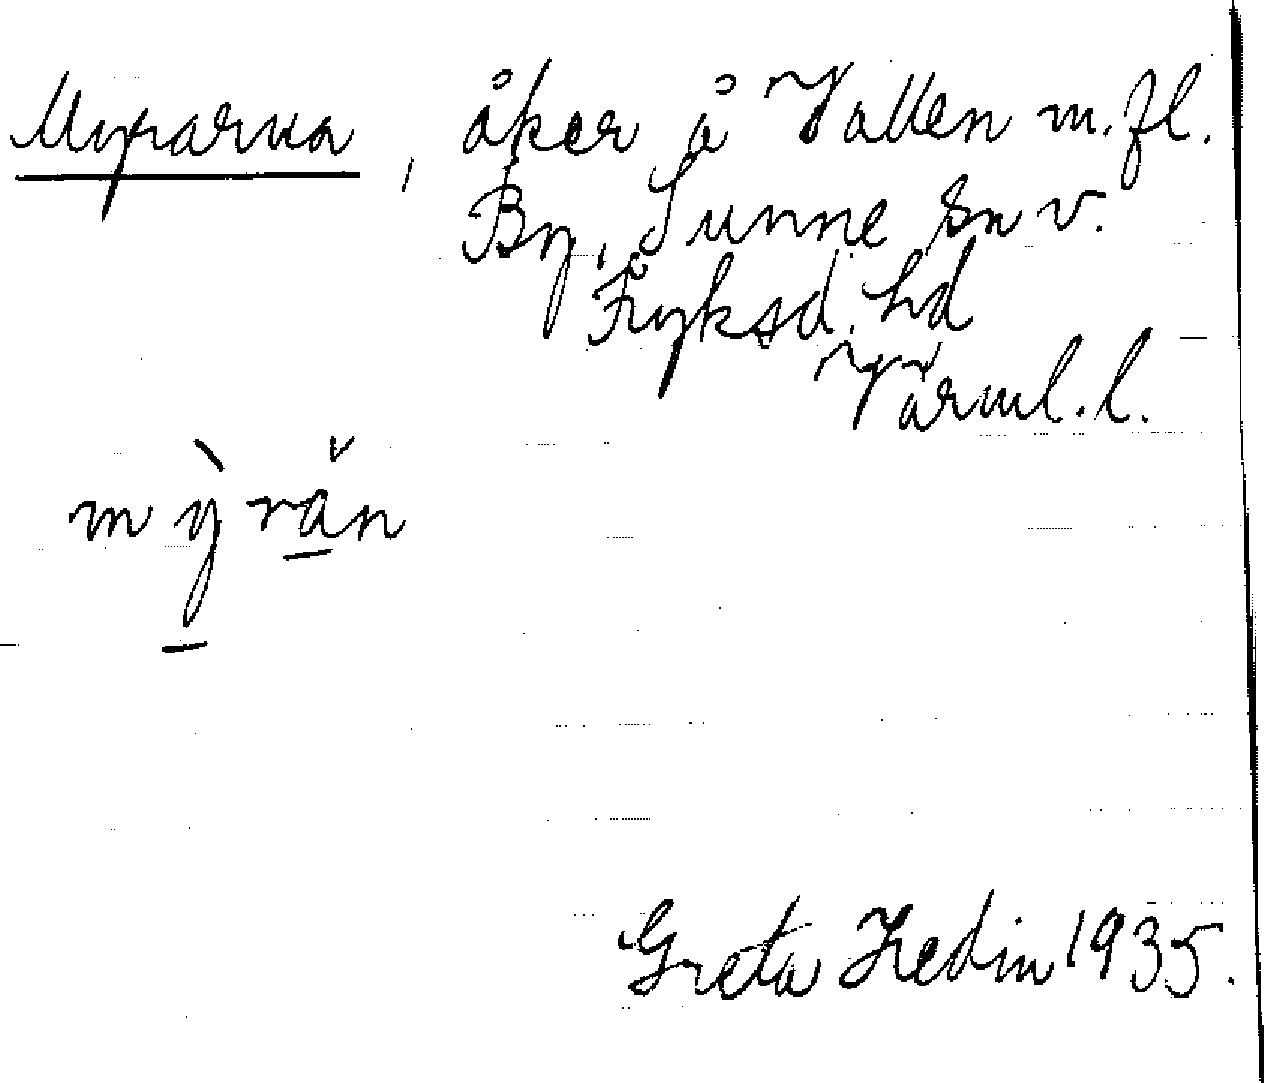 Myrarna, åker å Vallen m.fl.
By, Sunne sn v.
Fryksd. hd
Värml. l.
mỳrăn
Greta Hedin 1935.